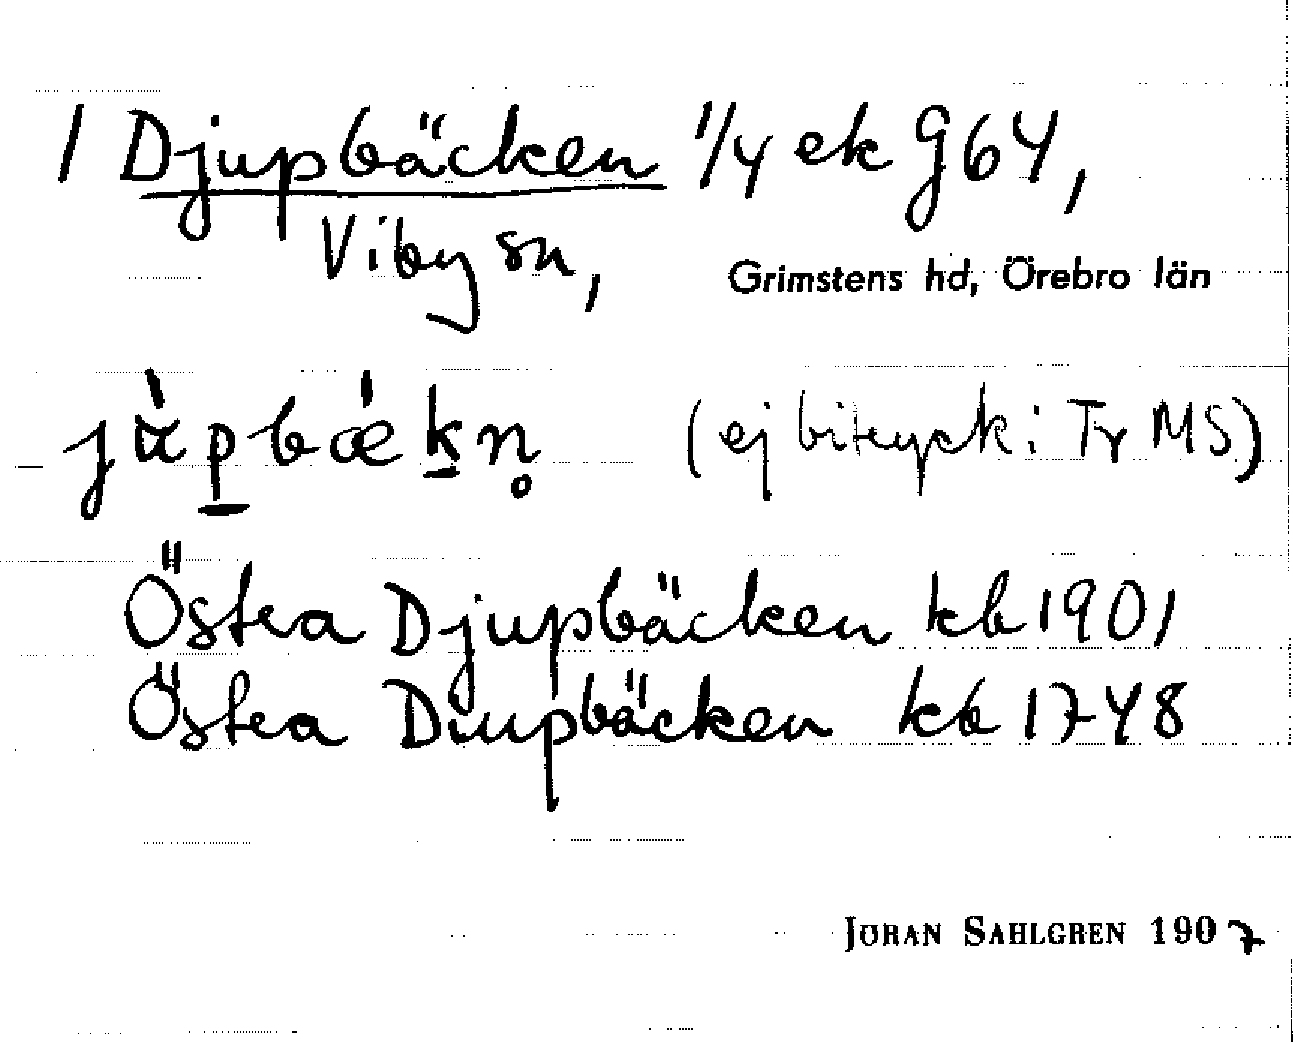 1 Djupbäcken 1/4 ek G64,
Viby sn,
Grimstens hd, Örebro län
(ej bitryck: Tr MS)
Östra Djupbäcken kb 1901
Östra Diupbäcken kb 1748
JÖRAN SAHLGREN 1907